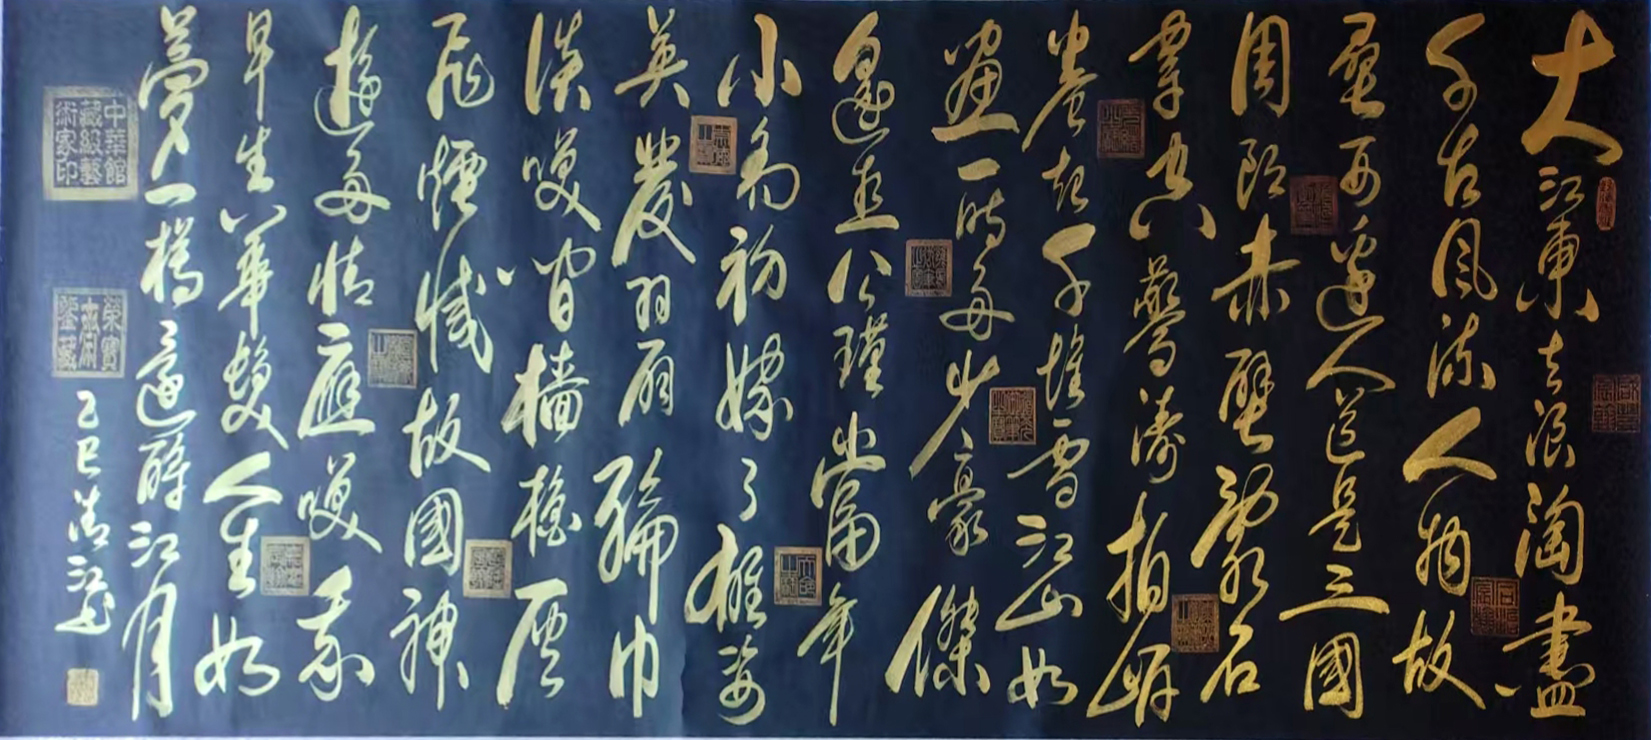 大江東去浪淘盡
千古風流人物故
壘西邊人道是三國
周郎赤壁亂石
穿空驚濤拍岸
卷起千堆雪江山如
畫一時多少豪傑
遙想公瑾當年
小喬初嫁了雄姿
英發羽扇綸巾
談笑間檣櫓灰
飛煙滅故國神
遊多情應笑我
早生華髮人生如
夢一樽還酹江月
乙巳
中華館藏級藝術家印